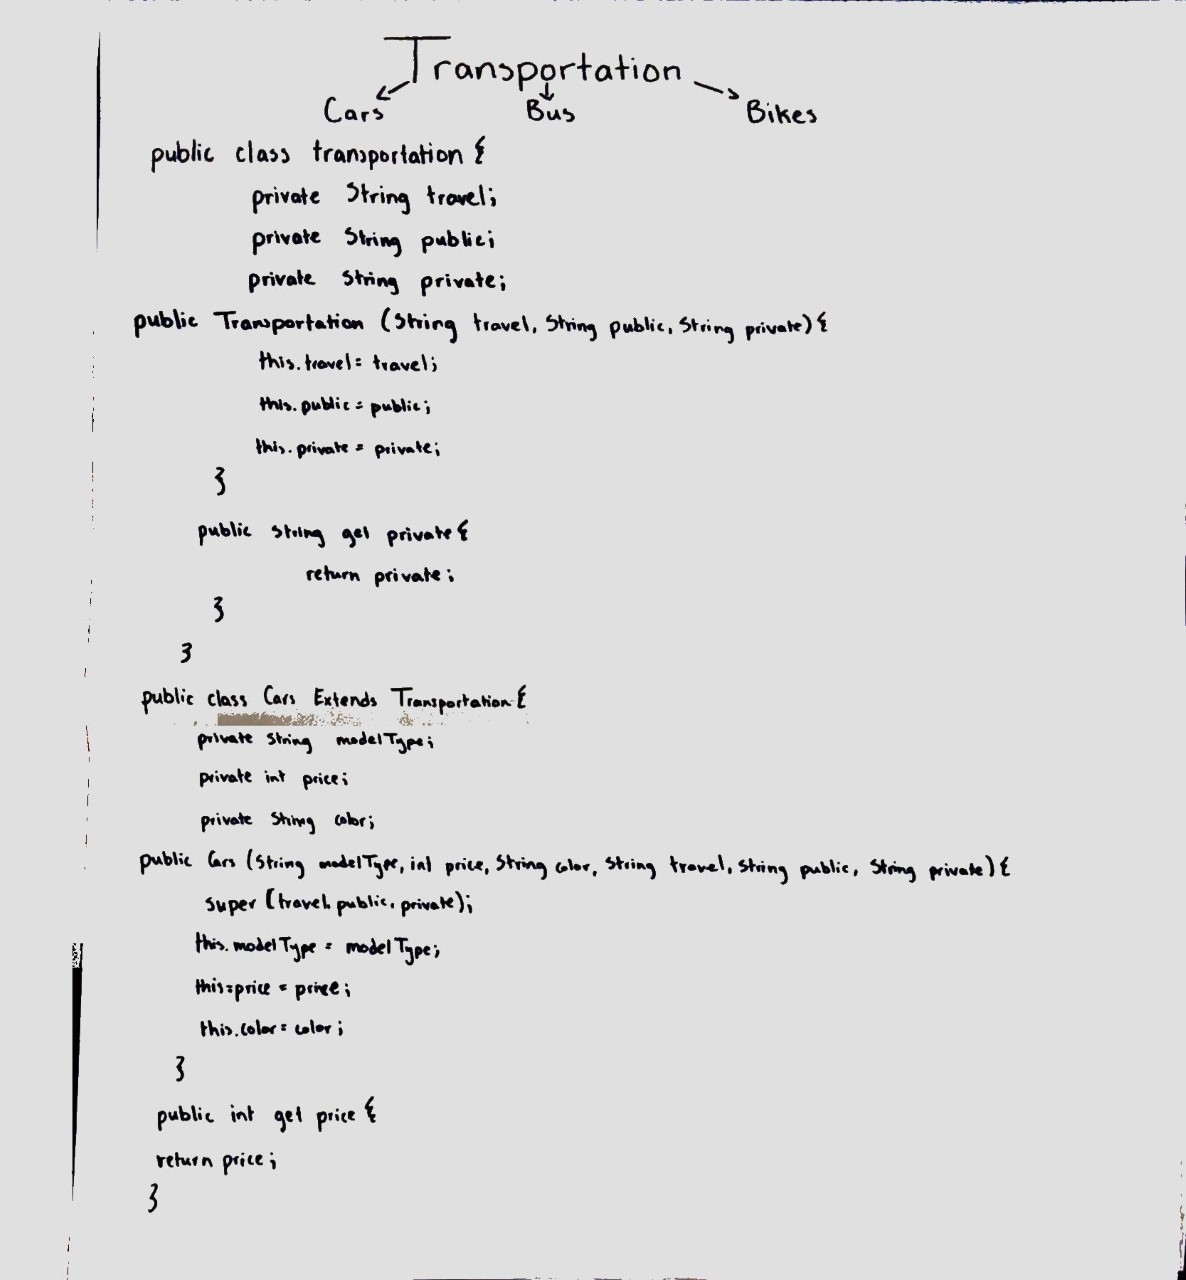 Transportation
Cars Bus Bikes
public class transportation {
private String travel;
private String public;
private String private;
public Transportation (String travel, String public, String private) {
this.travel = travel;
this.public = public;
this.private = private;
}
public String get private {
return private;
}
}
public class Cars Extends Transportation {
private String modelType;
private int price;
private String color;
public Cars (String modelType, int price, String color, String travel, String public, String private) {
super (travel, public, private);
this.modelType = modelType;
this=price = price;
this.color = color;
}
public int get price {
return price;
}